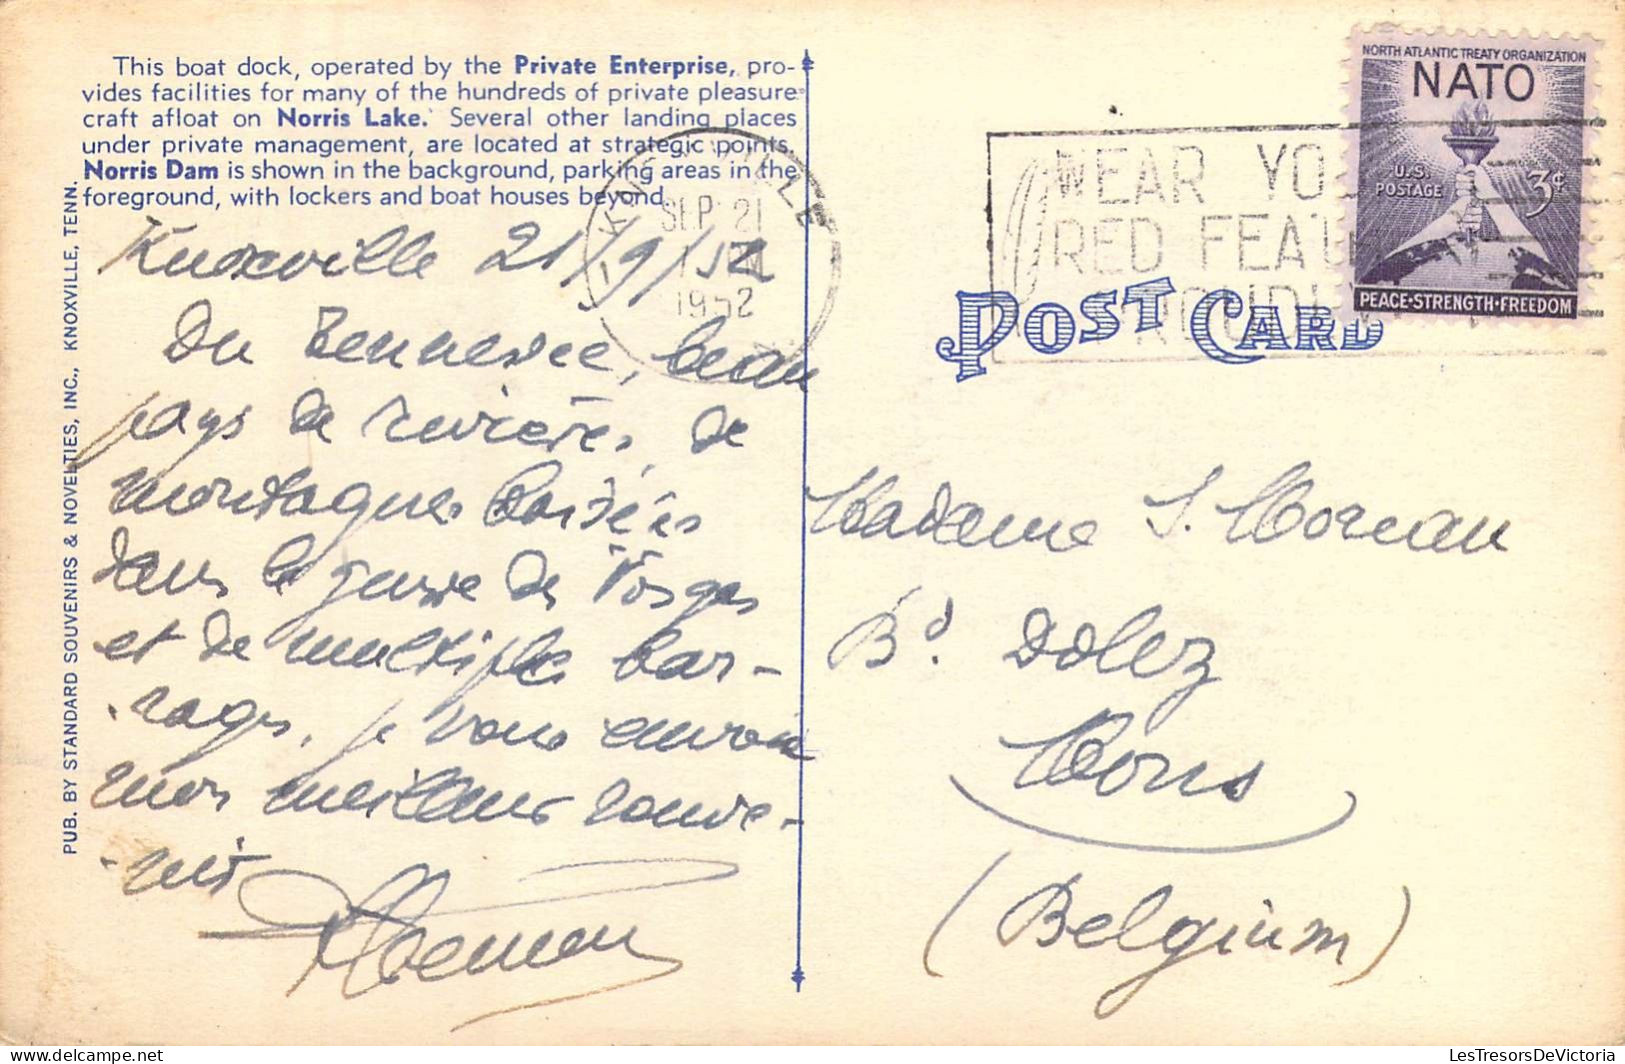 This boat dock, operated by the Private Enterprise, pro-
vides facilities for many of the hundreds of private pleasure
craft afloat on Norris Lake. Several other landing places
under private management, are located at strategic points.
Norris Dam is shown in the background, parking areas in the
foreground, with lockers and boat houses beyond.
PUB. BY STANDARD SOUVENIRS & NOVELTIES, INC., KNOXVILLE, TENN.
Knoxville 21/9/52
Du Tennessee, beau
pays de rivières, de
montagnes boisées
dans le genre des Vosges
et de multiples bar-
rages, je vous envoie
mes meilleurs souve-
-nirs
KNOXVILLE
SEP 21
1952
WEAR YO
RED FEATU
PROUDLY
NORTH ATLANTIC TREATY ORGANIZATION
NATO
U.S.
POSTAGE
3¢
PEACE·STRENGTH·FREEDOM
POST CARD
Madame S. Moreau
Bd. Dolez
Mons
(Belgium)
LesTresorsDeVictoria